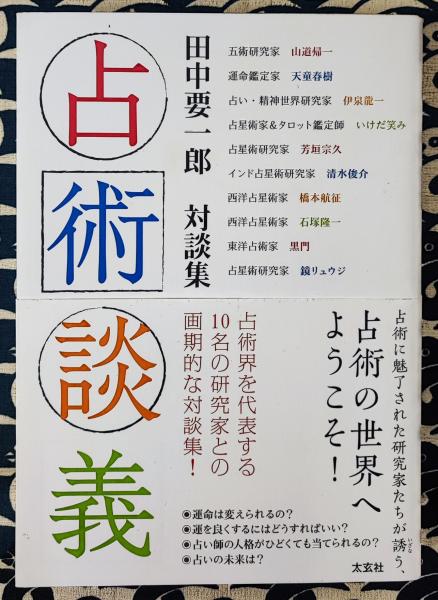 占術談義
田中要一郎 対談集
五術研究家 山道帰一
運命鑑定家 天童春樹
占い・精神世界研究家 伊泉龍一
占星術家&タロット鑑定師 いけだ笑み
占星術研究家 芳垣宗久
インド占星術研究家 清水俊介
西洋占星術家 橋本航征
西洋占星術家 石塚隆一
東洋占術家 黒門
占星術研究家 鏡リュウジ
占術に魅了された研究家たちが誘う、
いざな
占術の世界へ
ようこそ!
占術界を代表する
10名の研究家との
画期的な対談集!
◉運命は変えられるの?
◉運を良くするにはどうすればいい?
◉占い師の人格がひどくても当てられるの?
◉占いの未来は?
太玄社